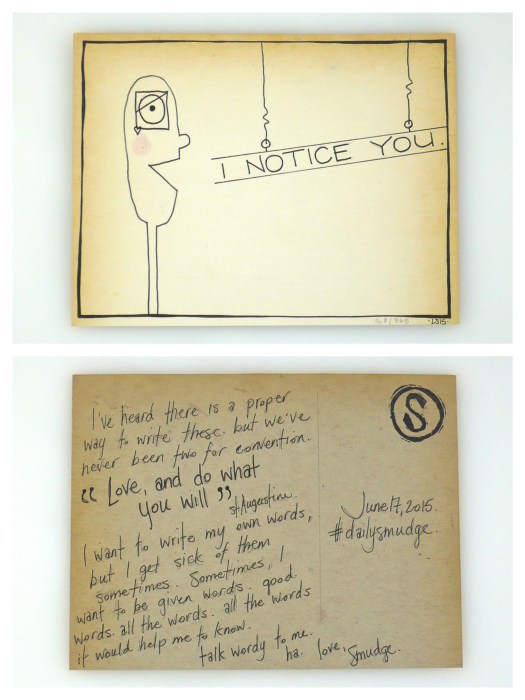 I NOTICE YOU.
-2015-
I've heard there is a proper
way to write these. but we've
never been two for convention.
"Love, and do what
you will"
st. Augustine.
I want to write my own words,
but I get sick of them
sometimes. Sometimes, I
want to be given words. good
words. all the words. all the words
it would help me to know.
talk wordy to me.
ha. love, smudge.
S
June 17, 2015.
#dailysmudge.